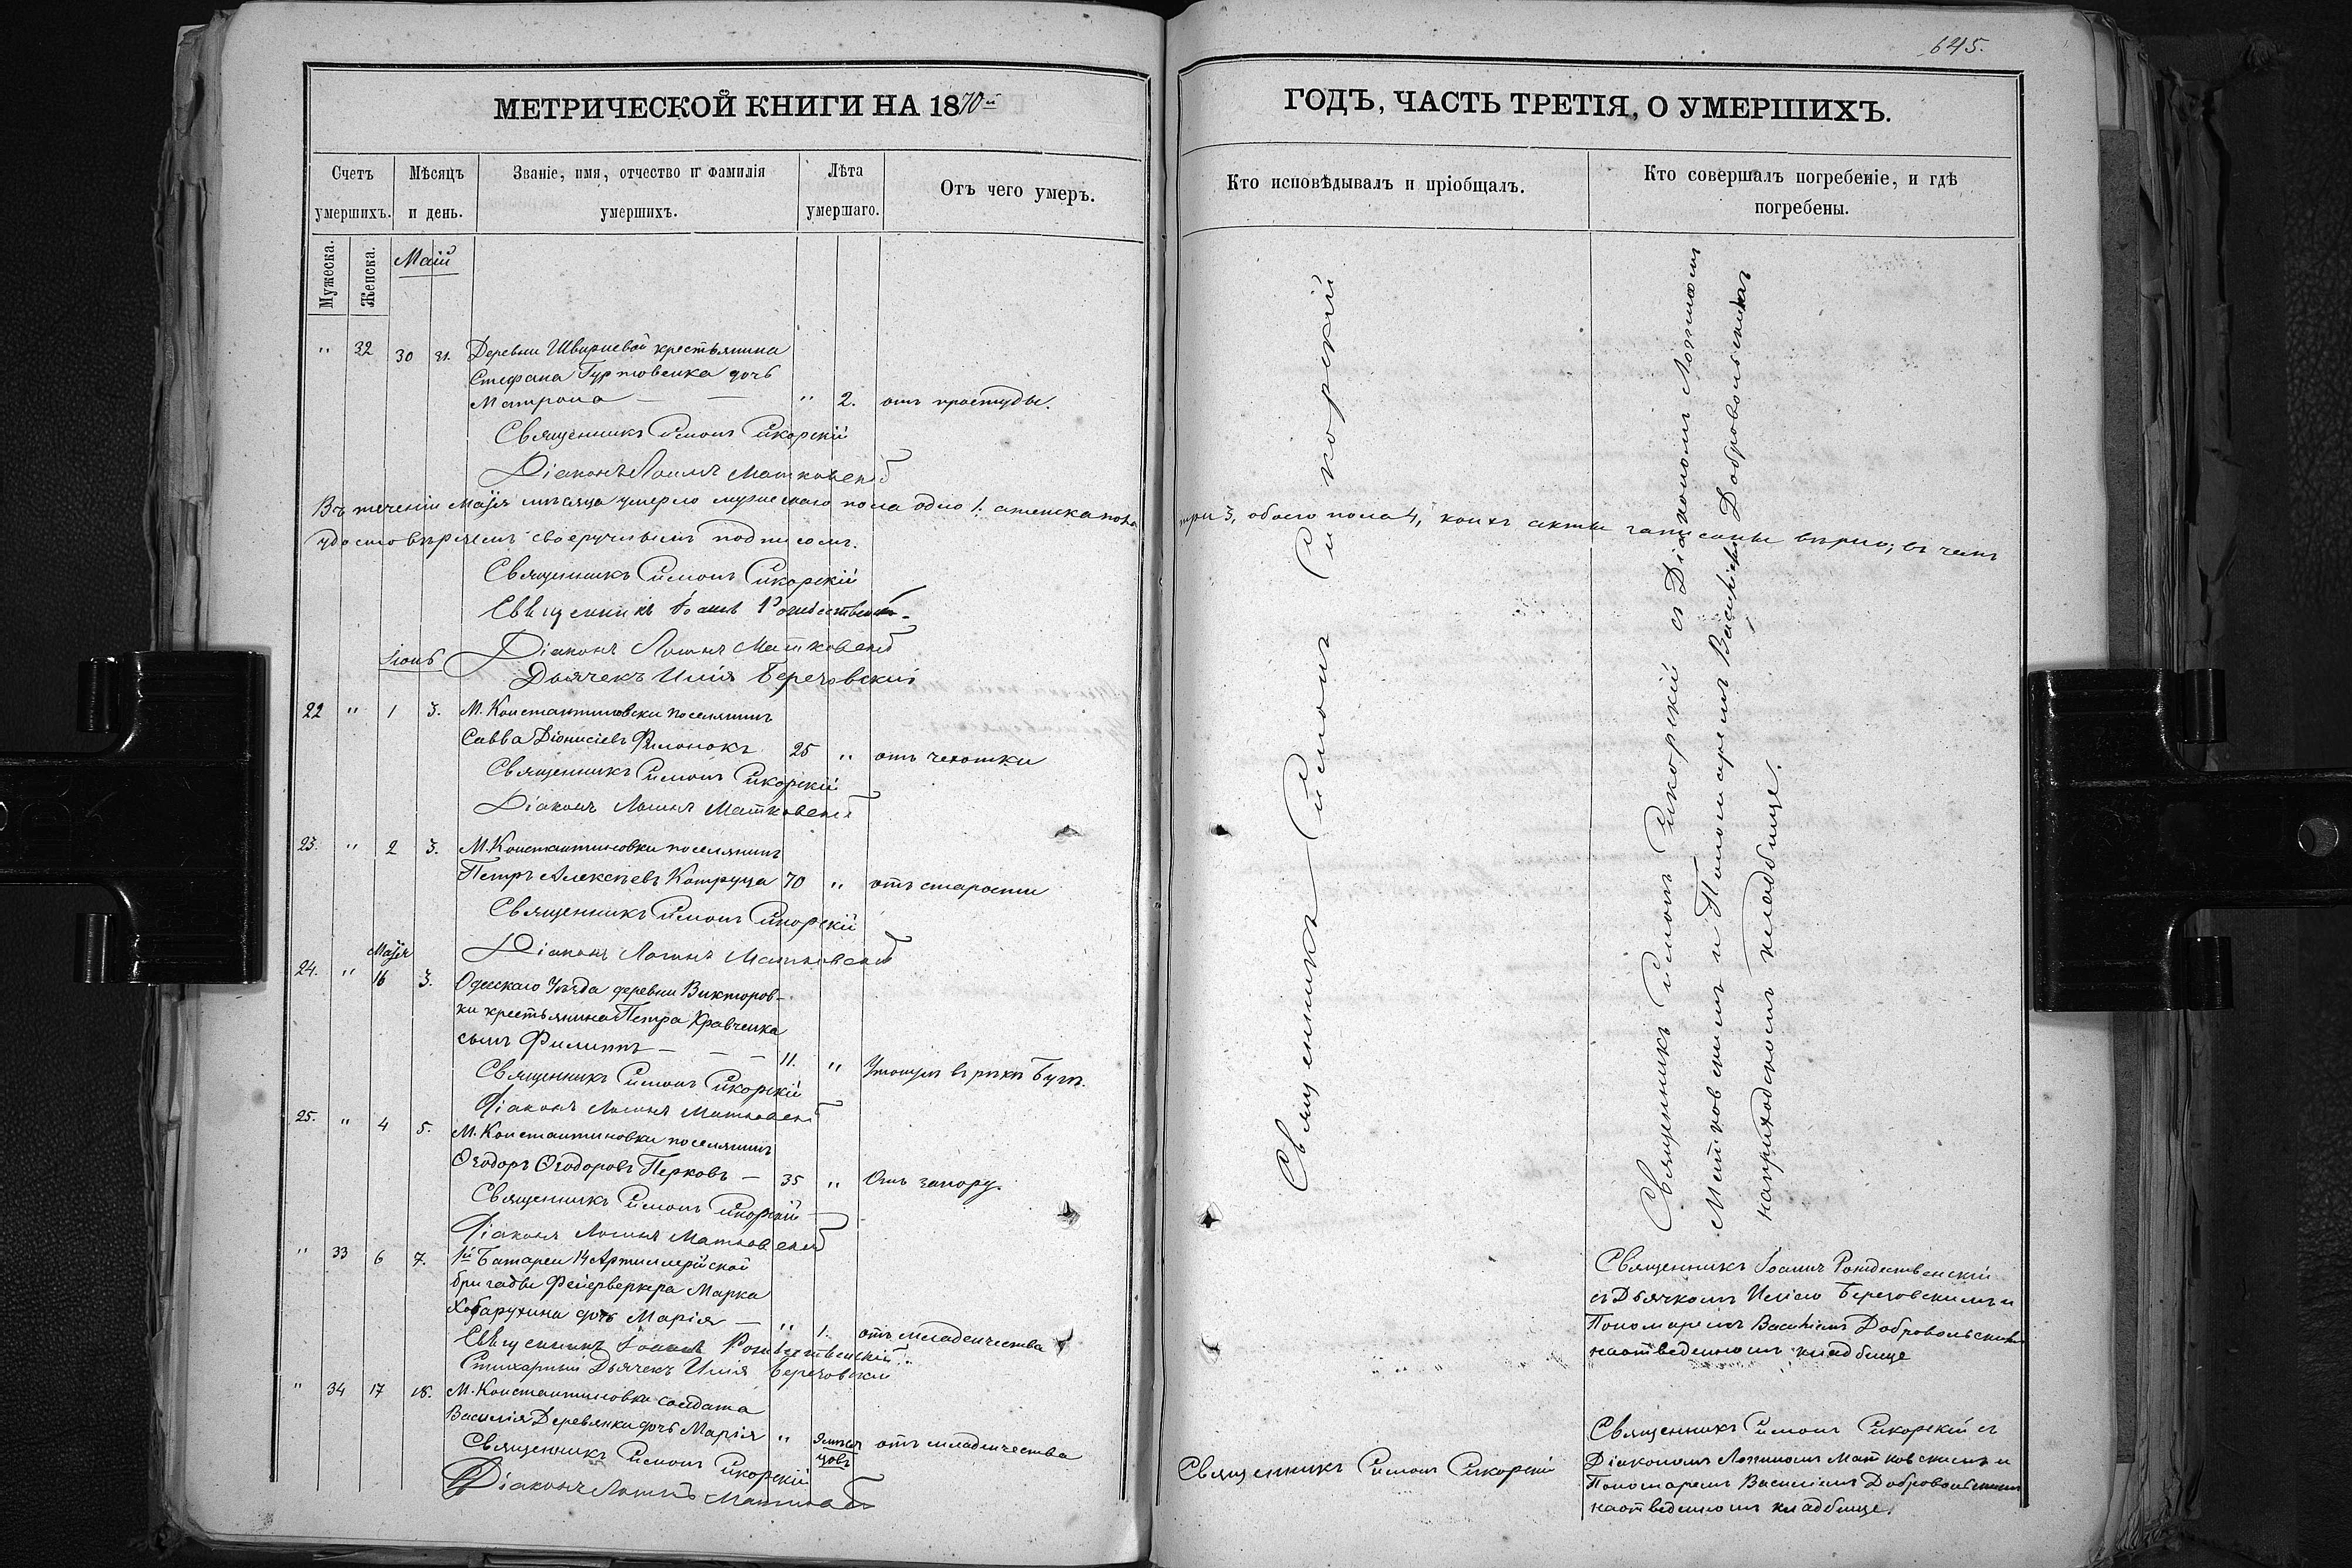 645.
МЕТРИЧЕСКОЙ КНИГИ НА 1870й
ГОДЪ, ЧАСТЬ ТРЕТІЯ, О УМЕРШИХЪ.
Счетъ умершихъ.
Мѣсяцъ и день.
Званіе, имя, отчество и фамилія умершихъ.
Лѣта умершаго.
Отъ чего умеръ.
Кто исповѣдывалъ и пріобщалъ.
Кто совершалъ погребеніе, и гдѣ погребены.
Мужеска.
Женска.
Маій
" 32 30 31. Деревни Швариевой крестьянина
Стефана Гуртовенка дочь
Матрона — — " 2. отъ простуды.
Священникъ Симонъ Сикорскій
Діаконъ Логинъ Матковскій
Въ теченіи Маія мѣсяца умерло мужескаго пола одно 1. а женска пола три 3, обоего пола 4, коихъ акты записаны вѣрно; въ чемъ
удостовѣряемъ своеручнымъ подписомъ.
Священникъ Симонъ Сикорскій
Священникъ Іоаннъ Рождественскій
Діаконъ Логинъ Матковскій
Дьячекъ Илія Березовскій
Іюнь
22 " 1 3. М. Константиновки поселянинъ
Савва Діонисіевъ Филонокъ 25 " отъ чехотки
Священникъ Симонъ Сикорскій
Діаконъ Логинъ Матковскій
23. " 2 3. М. Константиновки поселянинъ
Петръ Алексѣевъ Катруца 70 " отъ старости
Священникъ Симонъ Сикорскій
Діаконъ Логинъ Матковскій
Маія
24. " 16 3. Одесскаго Уѣзда деревни Викторов-
ки крестьянина Петра Кравченка
сынъ Филиппъ — — — 11. " Утонулъ въ рѣкѣ Бугѣ.
Священникъ Симонъ Сикорскій
Діаконъ Логинъ Матковскій
25. " 4 5. М. Константиновки поселянинъ
Ѳеодоръ Ѳеодоровъ Перковъ — 35 " Отъ запору.
Священникъ Симонъ Сикорскій
Діаконъ Логинъ Матковскій
" 33 6 7. 1й Батареи 14 Артиллерійской
бригады Фейерверкера Марка
дочь Марія — " 1. отъ младенчества
Священникъ Іоаннъ Рождественскій
Стихарный Дьячекъ Илія Березовскій
" 34 17 18. М. Константиновки солдата
Василія Деревянки дочь Марія " 9 мѣся цовъ отъ младенчества
Священникъ Симонъ Сикорскій
Діаконъ Логинъ Матковскій
Священникъ Симонъ Сикорскій
Священникъ Симонъ Сикорскій съ Діакономъ Логиномъ
Матковскимъ и Пономаремъ Василіемъ Добровольскимъ
на приходскомъ кладбище.
Священникъ Іоаннъ Рождественскій
съ Дьячкомъ Иліею Березовскимъ и
Пономаремъ Василіемъ Добровольскимъ
на отведенномъ кладбище
Священникъ Симонъ Сикорскій
Священникъ Симонъ Сикорскій съ
Діакономъ Логиномъ Матковскимъ и
Пономаремъ Василіемъ Добровольскимъ
на отведенномъ кладбище.